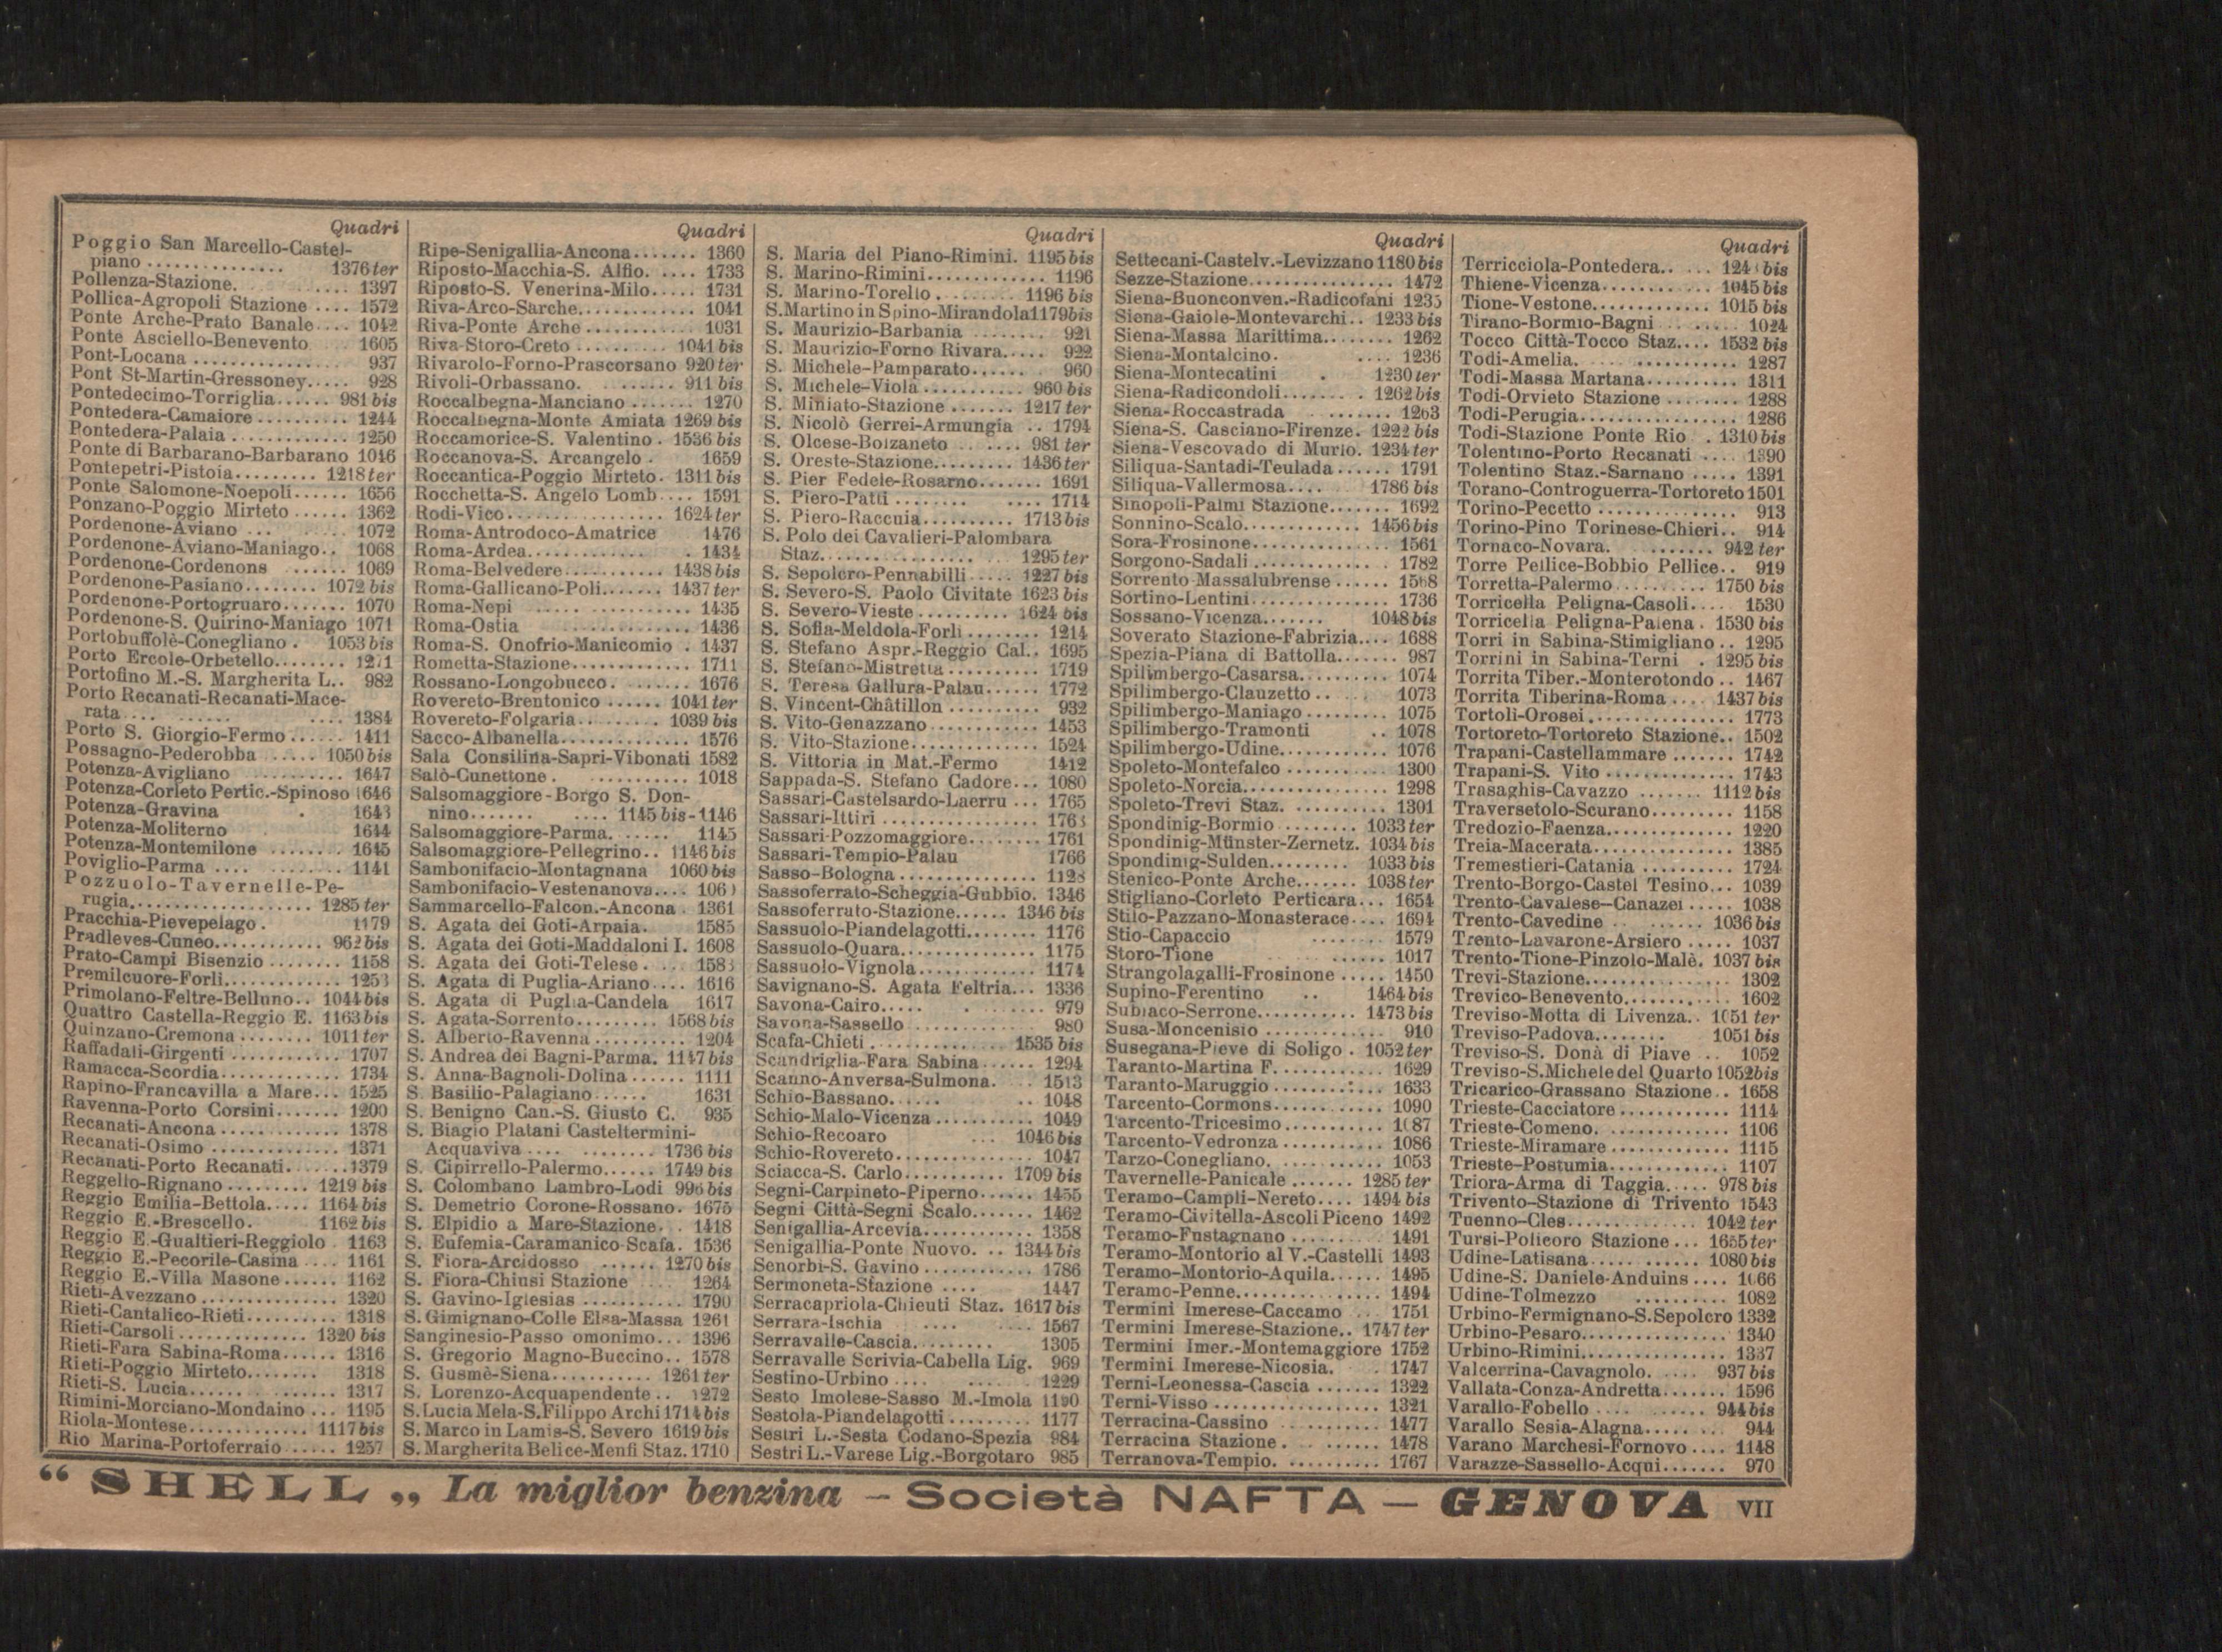 Quadri
Poggio San Marcello-Castel-
piano ............... 1376 ter
Pollenza-Stazione. ......... 1397
Pollica-Agropoli Stazione .... 1572
Ponte Arche-Prato Banale.... 1042
Ponte Asciello-Benevento 1605
Pont-Locana ................ 937
Pont St-Martin-Gressoney..... 928
Pontedecimo-Torriglia...... 981 bis
Pontedera-Camaiore .......... 1244
Pontedera-Palaia ............ 1250
Ponte di Barbarano-Barbarano 1046
Pontepetri-Pistoia......... 1218 ter
Ponte Salomone-Noepoli...... 1656
Ponzano-Poggio Mirteto ...... 1362
Pordenone-Aviano ... ...... 1072
Pordenone-Aviano-Maniago.. 1068
Pordenone-Cordenons ...... 1069
Pordenone-Pasiano........ 1072 bis
Pordenone-Portogruaro....... 1070
Pordenone-S. Quirino-Maniago 1071
Portobuffolè-Conegliano . 1053 bis
Porto Ercole-Orbetello........
Portofino M.-S. Margherita L.. 982
Porto Recanati-Recanati-Mace-
rata.... ...... .... 1384
Porto S. Giorgio-Fermo ...... 1411
Possagno-Pederobba ...... 1050 bis
Potenza-Avigliano .......... 1647
Potenza-Corleto Pertic.-Spinoso 1646
Potenza-Gravina . 1643
Potenza-Moliterno 1644
Potenza-Montemilone ........ 1645
Poviglio-Parma .... ........ 1141
Pozzuolo-Tavernelle-Pe-
rugia.................. 1285 ter
Pracchia-Pievepelago . 1179
Pradleves-Cuneo............ 962 bis
Prato-Campi Bisenzio ........ 1158
Premilcuore-Forlì............ 1253
Primolano-Feltre-Belluno.. 1044 bis
Quattro Castella-Reggio E. 1163 bis
Quinzano-Cremona ........ 1011 ter
Raffadali-Girgenti ............ 1707
Ramacca-Scordia............. 1734
Rapino-Francavilla a Mare... 1525
Ravenna-Porto Corsini....... 1200
Recanati-Ancona ............. 1378
Recanati-Osimo .............. 1371
Recanati-Porto Recanati....... 1379
Reggello-Rignano ......... 1219 bis
Reggio Emilia-Bettola..... 1164 bis
Reggio E.-Brescello. 1162 bis
Reggio E.-Gualtieri-Reggiolo . 1163
Reggio E.-Pecorile-Casina .... 1161
Reggio E.-Villa Masone ...... 1162
Rieti-Avezzano ............... 1320
Rieti-Cantalico-Rieti.......... 1318
Rieti-Carsoli .............. 1320 bis
Rieti-Fara Sabina-Roma...... 1316
Rieti-Poggio Mirteto........ 1318
Rieti-S. Lucia...... ....... 1317
Rimini-Morciano-Mondaino ... 1195
Riola-Montese............. 1117 bis
Rio Marina-Portoferraio ...... 1257
Quadri
Ripe-Senigallia-Ancona....... 1360
Riposto-Macchia-S. Alfio. .... 1733
Riposto-S. Venerina-Milo..... 1731
Riva-Arco-Sarche............. 1041
Riva-Ponte Arche ............ 1031
Riva-Storo-Creto .......... 1041 bis
Rivarolo-Forno-Prascorsano 920 ter
Rivoli-Orbassano. ....... 911 bis
Roccalbegna-Manciano ....... 1270
Roccalbegna-Monte Amiata 1269 bis
Roccamorice-S. Valentino . 1536 bis
Roccanova-S. Arcangelo . 1659
Roccantica-Poggio Mirteto. 1311 bis
Rocchetta-S. Angelo Lomb.... 1591
Rodi-Vico................. 1624 ter
Roma-Antrodoco-Amatrice 1476
Roma-Ardea............ . 1434
Roma-Belvedere........... 1438 bis
Roma-Gallicano-Poli...... 1437 ter
Roma-Nepi ..... ............ 1435
Roma-Ostia ............. 1436
Roma-S. Onofrio-Manicomio . 1437
Rometta-Stazione............. 1711
Rossano-Longobucco. ....... 1676
Rovereto-Brentonico ...... 1041 ter
Rovereto-Folgaria......... 1039 bis
Sacco-Albanella.............. 1576
Sala Consilina-Sapri-Vibonati 1582
Salò-Cunettone . .......... 1018
Salsomaggiore-Borgo S. Don-
nino....... .... 1145 bis-1146
Salsomaggiore-Parma. ...... 1145
Salsomaggiore-Pellegrino.. 1146 bis
Sambonifacio-Montagnana 1060 bis
Sambonifacio-Vestenanova....
Sammarcello-Falcon.-Ancona . 1361
S. Agata dei Goti-Arpaia. 1585
S. Agata dei Goti-Maddaloni I. 1608
S. Agata dei Goti-Telese. ... 1583
S. Agata di Puglia-Ariano.... 1616
S. Agata di Puglia-Candela 1617
S. Agata-Sorrento......... 1568 bis
S. Alberto-Ravenna .......... 1204
S. Andrea dei Bagni-Parma. 1147 bis
S. Anna-Bagnoli-Dolina ...... 1111
S. Basilio-Palagiano ...... 1631
S. Benigno Can.-S. Giusto C. 935
S. Biagio Platani Casteltermini-
Acquaviva .... ........ 1736 bis
S. Cipirrello-Palermo...... 1749 bis
S. Colombano Lambro-Lodi 996 bis
S. Demetrio Corone-Rossano. 1675
S. Elpidio a Mare-Stazione. . 1418
S. Eufemia-Caramanico-Scafa. 1536
S. Fiora-Arcidosso ...... 1270 bis
S. Fiora-Chiusi Stazione ... 1264
S. Gavino-Iglesias ........... 1790
S. Gimignano-Colle Elsa-Massa 1261
Sanginesio-Passo omonimo... 1396
S. Gregorio Magno-Buccino.. 1578
S. Gusmè-Siena........... 1261 ter
S. Lorenzo-Acquapendente .. 1272
S. Lucia Mela-S. Filippo Archi 1714 bis
S. Marco in Lamis-S. Severo 1619 bis
S. Margherita Belice-Menfi Staz. 1710
Quadri
S. Maria del Piano-Rimini. 1195 bis
S. Marino-Rimini............. 1196
S. Marino-Torello . ....... 1196 bis
S. Martino in Spino-Mirandola 1179 bis
S. Maurizio-Barbania ........ 921
S. Maurizio-Forno Rivara..... 922
S. Michele-Pamparato...... 960
S. Michele-Viola ........... 960 bis
S. Miniato-Stazione ....... 1217 ter
S. Nicolò Gerrei-Armungia .. 1794
S. Olcese-Bolzaneto .. .... 981 ter
S. Oreste-Stazione......... 1436 ter
S. Pier Fedele-Rosarno....... 1691
S. Piero-Patti ........ .... 1714
S. Piero-Raccuia.......... 1713 bis
S. Polo dei Cavalieri-Palombara
Staz................. ... 1295 ter
S. Sepolcro-Pennabilli..... 1227 bis
S. Severo-S. Paolo Civitate 1623 bis
S. Severo-Vieste .......... 1624 bis
S. Sofia-Meldola-Forlì ........ 1214
S. Stefano Aspr.-Reggio Cal.. 1695
S. Stefano-Mistretta .......... 1719
S. Teresa Gallura-Palau...... 1772
S. Vincent-Châtillon .......... 932
S. Vito-Genazzano ............ 1453
S. Vito-Stazione.............. 1524
S. Vittoria in Mat.-Fermo 1412
Sappada-S. Stefano Cadore... 1080
Sassari-Castelsardo-Laerru ... 1765
Sassari-Ittiri ................. 1763
Sassari-Pozzomaggiore........ 1761
Sassari-Tempio-Palau 1766
Sasso-Bologna ............... 1128
Sassoferrato-Scheggia-Gubbio. 1346
Sassoferrato-Stazione...... 1346 bis
Sassuolo-Piandelagotti........ 1176
Sassuolo-Quara............... 1175
Sassuolo-Vignola............. 1174
Savignano-S. Agata Feltria... 1336
Savona-Cairo..... . ....... 979
Savona-Sassello ............ 980
Scafa-Chieti ............... 1535 bis
Scandriglia-Fara Sabina ...... 1294
Scanno-Anversa-Sulmona. 1513
Schio-Bassano. ..... .. 1048
Schio-Malo-Vicenza ........... 1049
Schio-Recoaro ... 1046 bis
Schio-Rovereto............... 1047
Sciacca-S. Carlo........... 1709 bis
Segni-Carpineto-Piperno...... 1455
Segni Città-Segni Scalo....... 1462
Senigallia-Arcevia............ 1358
Senigallia-Ponte Nuovo. .. 1344 bis
Senorbì-S. Gavino ............ 1786
Sermoneta-Stazione .... 1447
Serracapriola-Chieuti Staz. 1617 bis
Serrara-Ischia .... .... 1567
Serravalle-Cascia......... 1305
Serravalle Scrivia-Cabella Lig. 969
Sestino-Urbino .... ...... 1229
Sesto Imolese-Sasso M.-Imola 1190
Sestola-Piandelagotti ......... 1177
Sestri L.-Sesta Codano-Spezia 984
Sestri L.-Varese Lig.-Borgotaro 985
Quadri
Settecani-Castelv.-Levizzano 1180 bis
Sezze-Stazione............... 1472
Siena-Buonconven.-Radicofani 1235
Siena-Gaiole-Montevarchi.. 1233 bis
Siena-Massa Marittima........ 1262
Siena-Montalcino. .... 1236
Siena-Montecatini . 1230 ter
Siena-Radicondoli........ . 1262 bis
Siena-Roccastrada ........ 1263
Siena-S. Casciano-Firenze. 1222 bis
Siena-Vescovado di Murlo. 1234 ter
Siliqua-Santadi-Teulada ...... 1791
Siliqua-Vallermosa.... 1786 bis
Sinopoli-Palmi Stazione...... 1692
Sonnino-Scalo............. 1456 bis
Sora-Frosinone............... 1561
Sorgono-Sadali .............. 1782
Sorrento Massalubrense ...... 1568
Sortino-Lentini............... 1736
Sossano-Vicenza....... 1048 bis
Soverato Stazione-Fabrizia.... 1688
Spezia-Piana di Battolla....... 987
Spilimbergo-Casarsa.......... 1074
Spilimbergo-Clauzetto .. ... 1073
Spilimbergo-Maniago ......... 1075
Spilimbergo-Tramonti .. 1078
Spilimbergo-Udine............ 1076
Spoleto-Montefalco ........... 1300
Spoleto-Norcia............... 1298
Spoleto-Trevi Staz. .......... 1301
Spondinig-Bormio ........ 1033 ter
Spondinig-Münster-Zernetz. 1034 bis
Spondinig-Sulden......... 1033 bis
Stenico-Ponte Arche....... 1038 ter
Stigliano-Corleto Perticara... 1654
Stilo-Pazzano-Monasterace.... 1694
Stio-Capaccio ........ 1579
Storo-Tione ...... 1017
Strangolagalli-Frosinone ..... 1450
Supino-Ferentino .. 1464 bis
Subiaco-Serrone........... 1473 bis
Susa-Moncenisio ............. 910
Susegana-Pieve di Soligo . 1052 ter
Taranto-Martina F............ 1629
Taranto-Maruggio ............ 1633
Tarcento-Cormons............ 1090
Tarcento-Tricesimo........... 1087
Tarcento-Vedronza ........... 1086
Tarzo-Conegliano. ........... 1053
Tavernelle-Panicale ....... 1285 ter
Teramo-Campli-Nereto.... 1494 bis
Teramo-Civitella-Ascoli Piceno 1492
Teramo-Fustagnano ......... 1491
Teramo-Montorio al V.-Castelli 1493
Teramo-Montorio-Aquila...... 1495
Teramo-Penne................ 1494
Termini Imerese-Caccamo ... 1751
Termini Imerese-Stazione.. 1747 ter
Termini Imer.-Montemaggiore 1752
Termini Imerese-Nicosia. . 1747
Terni-Leonessa-Cascia ....... 1322
Terni-Visso .................. 1321
Terracina-Cassino ........... 1477
Terracina Stazione. ........ 1478
Terranova-Tempio. .......... 1767
Quadri
Terricciola-Pontedera.. ... bis
Thiene-Vicenza............ 1045 bis
Tione-Vestone............. 1015 bis
Tirano-Bormio-Bagni ... ..... 1024
Tocco Città-Tocco Staz.... 1532 bis
Todi-Amelia. ............... 1287
Todi-Massa Martana.......... 1311
Todi-Orvieto Stazione ........ 1288
Todi-Perugia................. 1286
Todi-Stazione Ponte Rio . . 1310 bis
Tolentino-Porto Recanati .... 1390
Tolentino Staz.-Sarnano ..... 1391
Torano-Controguerra-Tortoreto 1501
Torino-Pecetto .............. 913
Torino-Pino Torinese-Chieri.. 914
Tornaco-Novara. ....... 942 ter
Torre Pellice-Bobbio Pellice.. 919
Torretta-Palermo.......... 1750 bis
Torricella Peligna-Casoli.... 1530
Torricella Peligna-Palena . 1530 bis
Torri in Sabina-Stimigliano .. 1295
Torrini in Sabina-Terni . 1295 bis
Torrita Tiber.-Monterotondo .. 1467
Torrita Tiberina-Roma .... 1437 bis
Tortolì-Orosei................ 1773
Tortoreto-Tortoreto Stazione.. 1502
Trapani-Castellammare ....... 1742
Trapani-S. Vito .............. 1743
Trasaghis-Cavazzo ....... 1112 bis
Traversetolo-Scurano......... 1158
Tredozio-Faenza............. 1220
Treia-Macerata............... 1385
Tremestieri-Catania .......... 1724
Trento-Borgo-Castel Tesino... 1039
Trento-Cavalese-Canazei ..... 1038
Trento-Cavedine .. ...... 1036 bis
Trento-Lavarone-Arsiero ..... 1037
Trento-Tione-Pinzolo-Malè. 1037 bis
Trevi-Stazione............... 1302
Trevico-Benevento............ 1602
Treviso-Motta di Livenza.. 1051 ter
Treviso-Padova....... 1051 bis
Treviso-S. Donà di Piave .. 1052
Treviso-S. Michele del Quarto 1052 bis
Tricarico-Grassano Stazione.. 1658
Trieste-Cacciatore ............ 1114
Trieste-Comeno. ............. 1106
Trieste-Miramare ............. 1115
Trieste-Postumia............. 1107
Triora-Arma di Taggia..... 978 bis
Trivento-Stazione di Trivento 1543
Tuenno-Cles.............. 1042 ter
Tursi-Policoro Stazione ... 1655 ter
Udine-Latisana............ 1080 bis
Udine-S. Daniele-Anduins .... 1066
Udine-Tolmezzo .......... 1082
Urbino-Fermignano-S. Sepolcro 1332
Urbino-Pesaro................ 1340
Urbino-Rimini................ 1337
Valcerrina-Cavagnolo. .... 937 bis
Vallata-Conza-Andretta....... 1596
Varallo-Fobello .... ...... 944 bis
Varallo Sesia-Alagna......... 944
Varano Marchesi-Fornovo .... 1148
Varazze-Sassello-Acqui....... 970
“ SHELL „ La miglior benzina – Società NAFTA – GENOVA VII